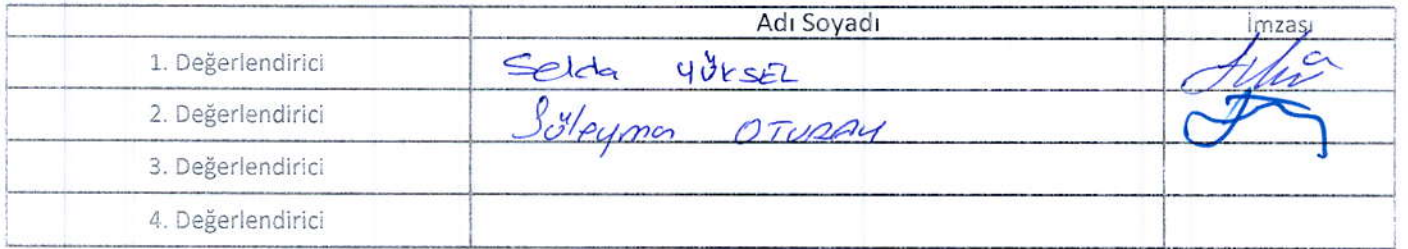 Adı Soyadı İmzası
1. Değerlendirici Selda YÜKSEL
2. Değerlendirici Süleyman OTURAY
3. Değerlendirici
4. Değerlendirici